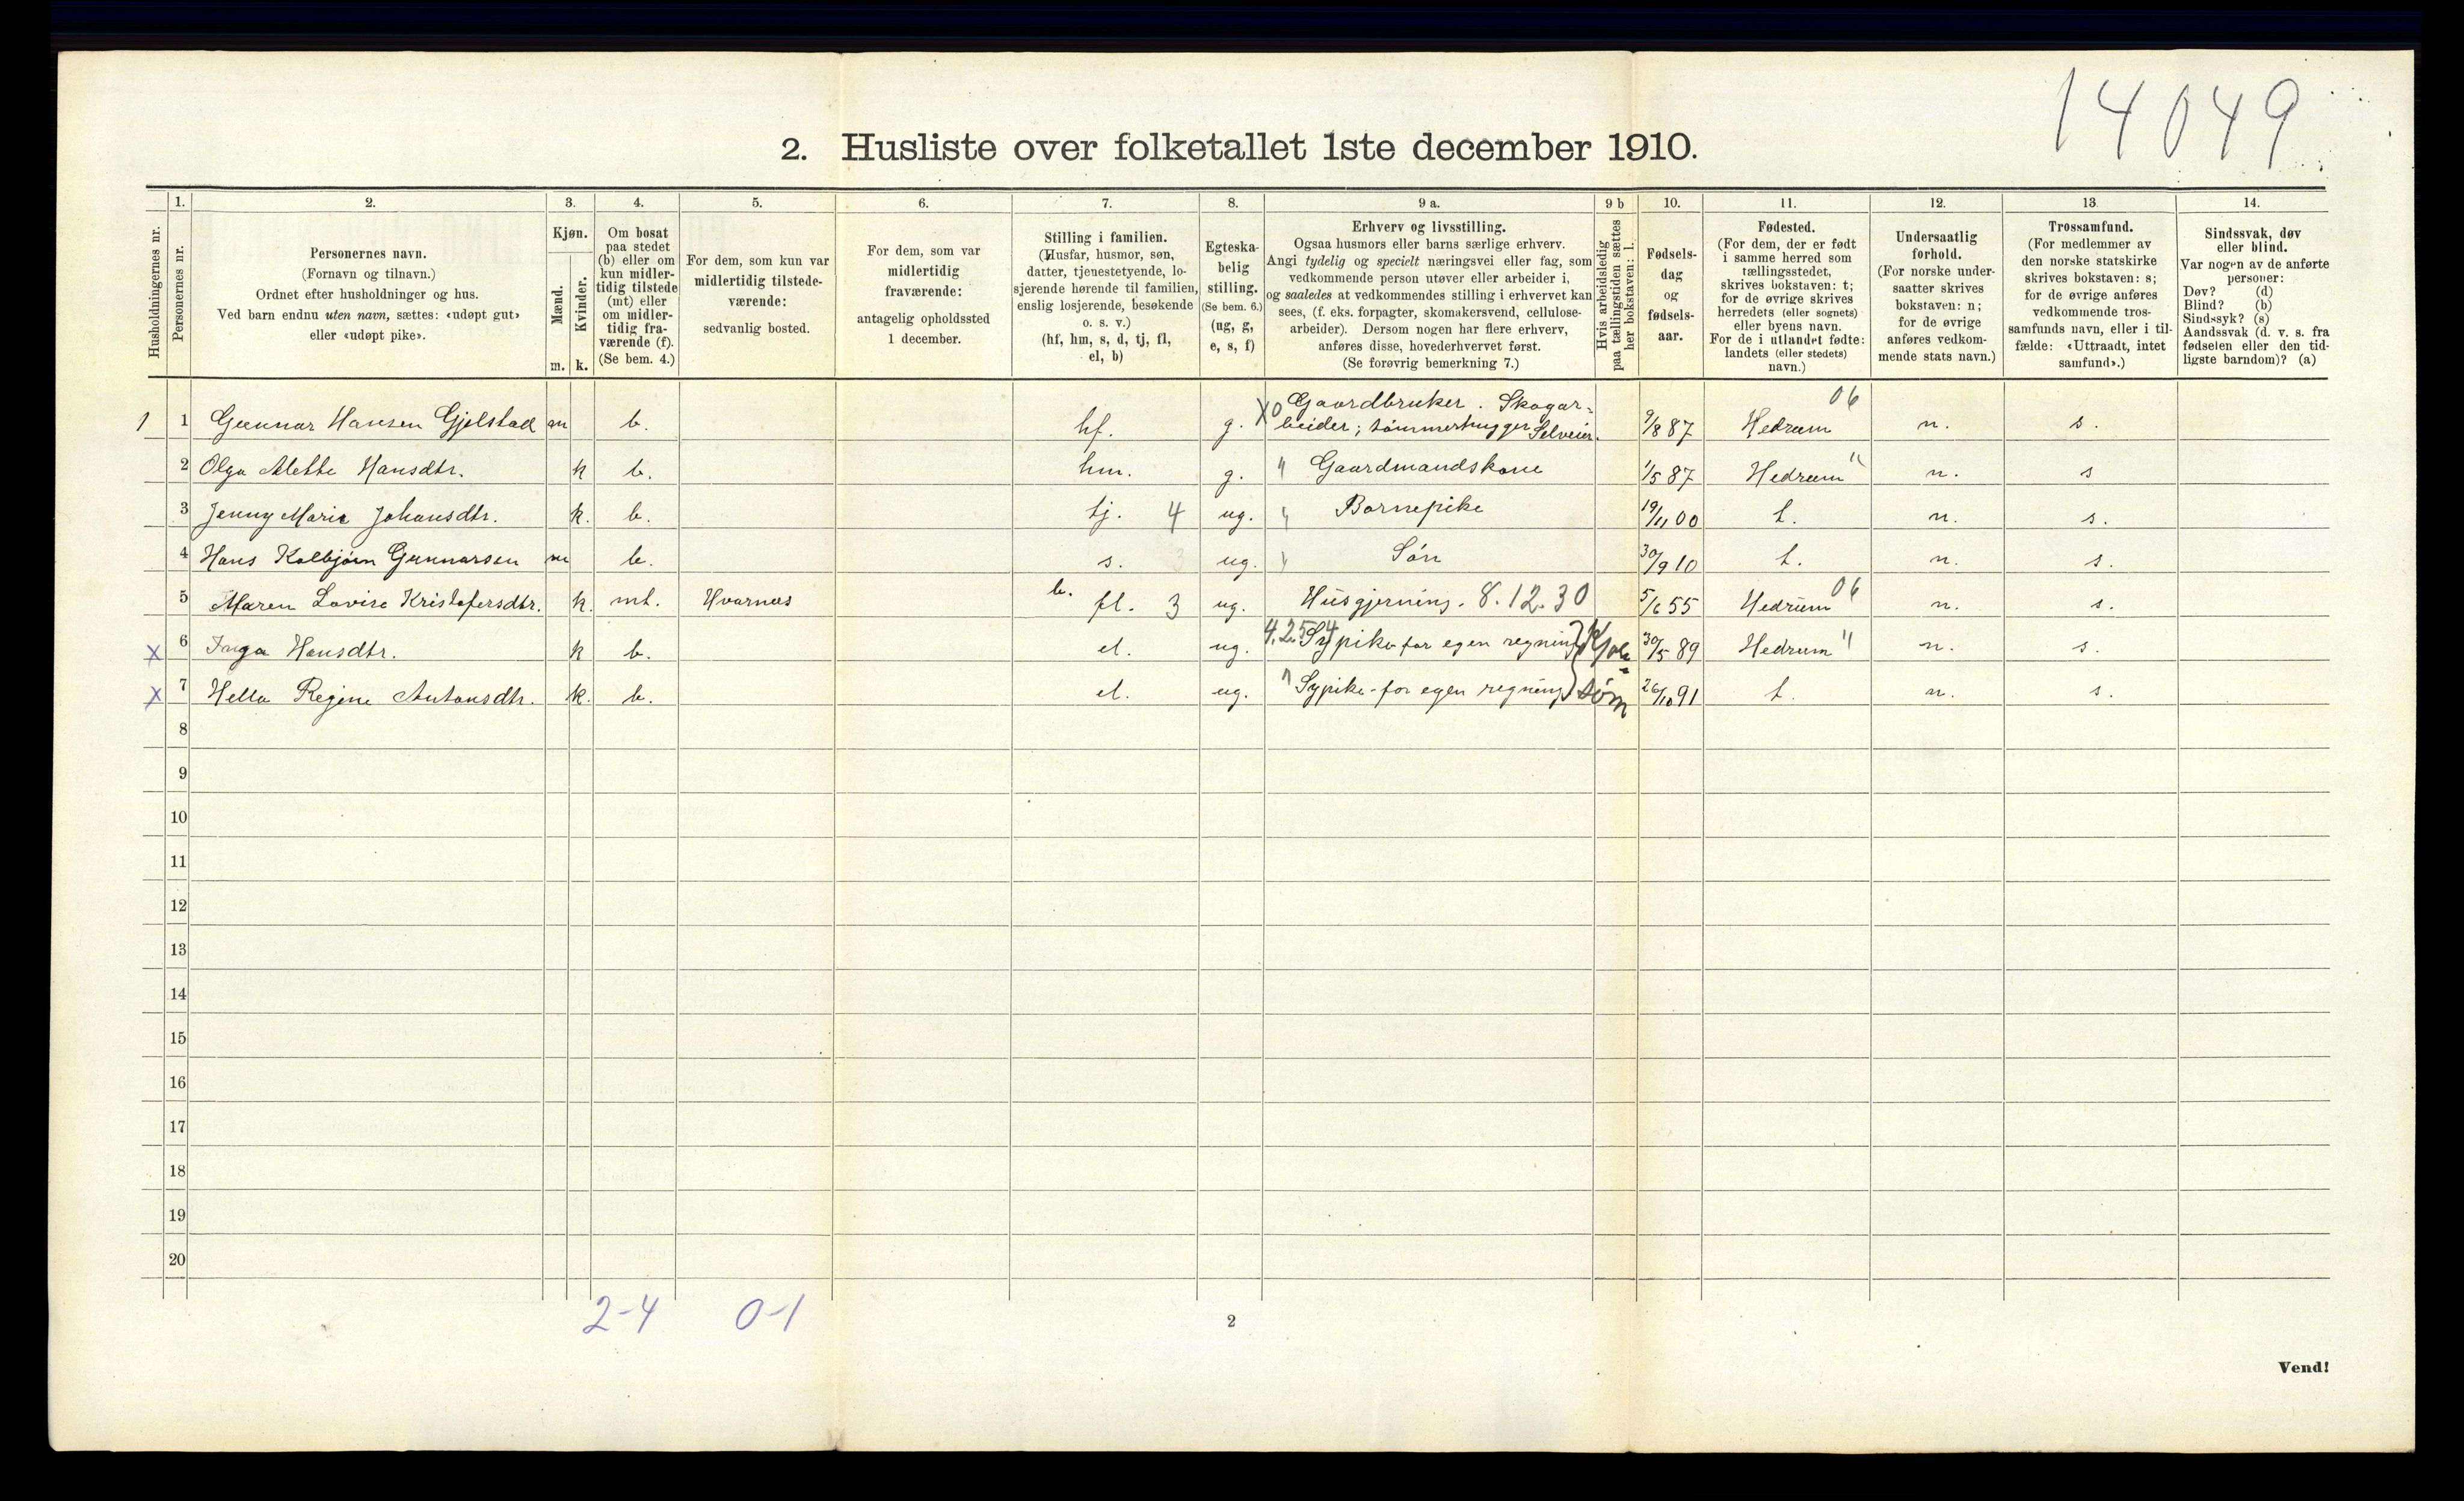 14049
2. Husliste over folketallet 1ste december 1910.
Husholdningernes nr.
1.
Personernes nr.
2.
Personernes navn.
(Fornavn og tilnavn.)
Ordnet efter husholdninger og hus.
Ved barn endnu uten navn, sættes: «udøpt gut»
eller «udøpt pike».
3.
Kjøn.
Mænd.
Kvinder.
m. k.
4.
Om bosat
paa stedet
(b) eller om
kun midler-
tidig tilstede
(mt) eller
om midler-
tidig fra-
værende (f).
(Se bem. 4.)
5.
For dem, som kun var
midlertidig tilstede-
værende:
sedvanlig bosted.
6.
For dem, som var
midlertidig
fraværende:
antagelig opholdssted
1 december.
7.
Stilling i familien.
(Husfar, husmor, søn,
datter, tjenestetyende, lo-
sjerende hørende til familien,
enslig losjerende, besøkende
o. s. v.)
(hf, hm, s, d, tj, fl,
el, b)
8.
Egteska-
belig
stilling.
(Se bem. 6.)
(ug, g,
e, s, f)
9 a.
Erhverv og livsstilling.
Ogsaa husmors eller barns særlige erhverv.
Angi tydelig og specielt næringsvei eller fag, som
vedkommende person utøver eller arbeider i,
og saaledes at vedkommendes stilling i erhvervet kan
sees, (f. eks. forpagter, skomakersvend, cellulose-
arbeider). Dersom nogen har flere erhverv,
anføres disse, hovederhvervet først.
(Se forøvrig bemerkning 7.)
9 b
Hvis arbeidsledig
paa tællingstiden sættes
her bokstaven: l.
10.
Fødsels-
dag
og
fødsels-
aar.
11.
Fødested.
(For dem, der er født
i samme herred som
tællingsstedet,
skrives bokstaven: t;
for de øvrige skrives
herredets (eller sognets)
eller byens navn.
For de i utlandet fødte:
landets (eller stedets)
navn.)
12.
Undersaatlig
forhold.
(For norske under-
saatter skrives
bokstaven: n;
for de øvrige
anføres vedkom-
mende stats navn.)
13.
Trossamfund.
(For medlemmer av
den norske statskirke
skrives bokstaven: s;
for de øvrige anføres
vedkommende tros-
samfunds navn, eller i til-
fælde: «Uttraadt, intet
samfund».)
14.
Sindssvak, døv
eller blind.
Var nogen av de anførte
personer:
Døv? (d)
Blind? (b)
Sindssyk? (s)
Aandssvak (d. v. s. fra
fødselen eller den tid-
ligste barndom)? (a)
1 1 Gunnar Hansen Gjelstad m b. hf. g. X0 Gaardbruker. Skogar-
beider; tømmerhugger Selveier. 9/8 87 Hedrum 06 n. s.
2 Olga Alette Hansdtr. k b. hm. g. " Gaardmandskone 1/5 87 Hedrum " n. s
3 Jenny Marie Johansdtr. k. b. tj. 4 ug. " Barnepike 19/11 00 t. n. s.
4 Hans Kolbjørn Gunnarsen m b. s. 3 ug. " Søn 30/9 10 t. n. s.
5 Maren Lovise Kristofersdtr. k. mt. Hvarnes b. fl. 3 ug. Husgjerning. 8.12.30 5/6 55 Hedrum 06 n. s.
X 6 Inga Hansdtr. k b. el. ug. 4.254 Sypike for egen regning } Kjole= 30/5 89 Hedrum " n. s.
X 7 Hella Regine Antonsdtr. k. b. el. ug. " Sypike for egen regning } søm 26/10 91 t. n. s.
8
9
10
11
12
13
14
15
16
17
18
19
20
2-4 0-1
2
Vend!